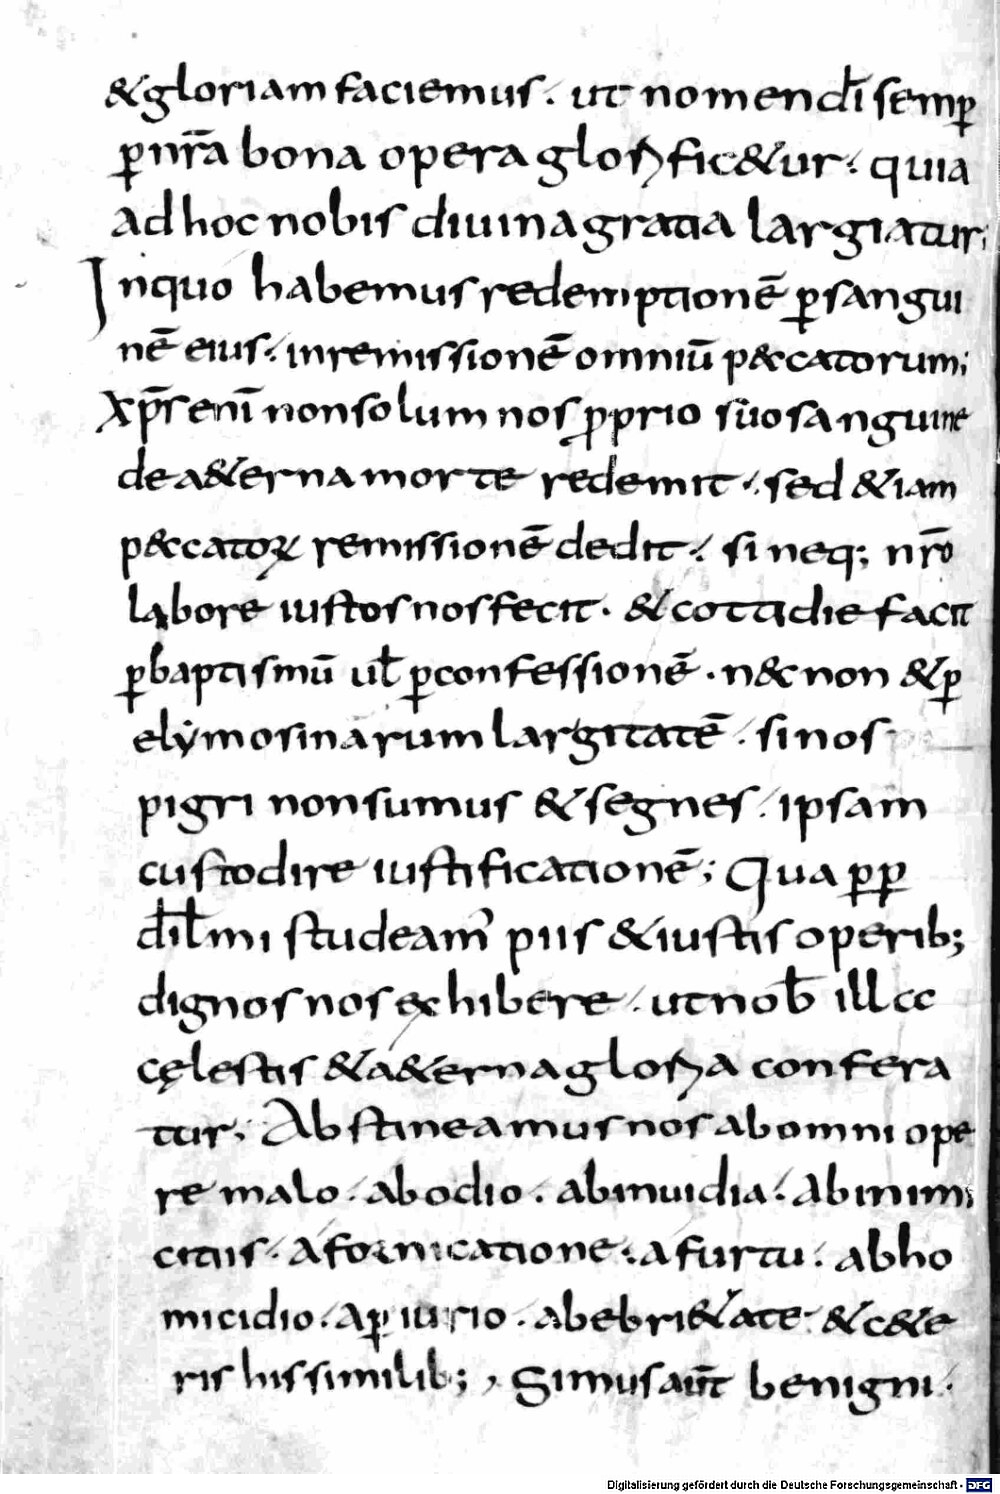 &gloriam faciemus. ut nomen dī semꝑ
ꝑ nr̄a bona opera glorific&ur. quia
ad hoc nobis diuina gratia largiatur;
In quo habemus redemptionē ꝑ sangui
nē eius. in remissionē omniū p&ccatorum;
Xp̄s enī non solum nos ꝓprio suo sanguine
de a&erna morte redemit. sed &iam
p&ccatoꝝ remissionē dedit. sineq; nr̄o
labore iustos nos fecit. &cottidie facit
ꝑ baptismū ul̄ ꝑ confessionē. n&c non &ꝑ
elẏmosinarum largitatē. si nos
pigri non sumus &segnes. ipsam
custodire iustificationē; Qua ꝓꝑ
dīl̄mi studeam' piis &iustis operib;
dignos nos exhibere. ut nob̄ illcc
cęlestis &a&erna gloria confera
tur; Abstineamus nos ab omni ope
re malo. ab odio. ab inuidia. ab inimi
citiis. a fornicatione. a furtu. ab ho
micidio. a ꝑiurio. ab ebri&ate. &c&e
ris his similib;, Simus aūt benigni.
Digitalisierung gefördert durch die Deutsche Forschungsgemeinschaft - DFG